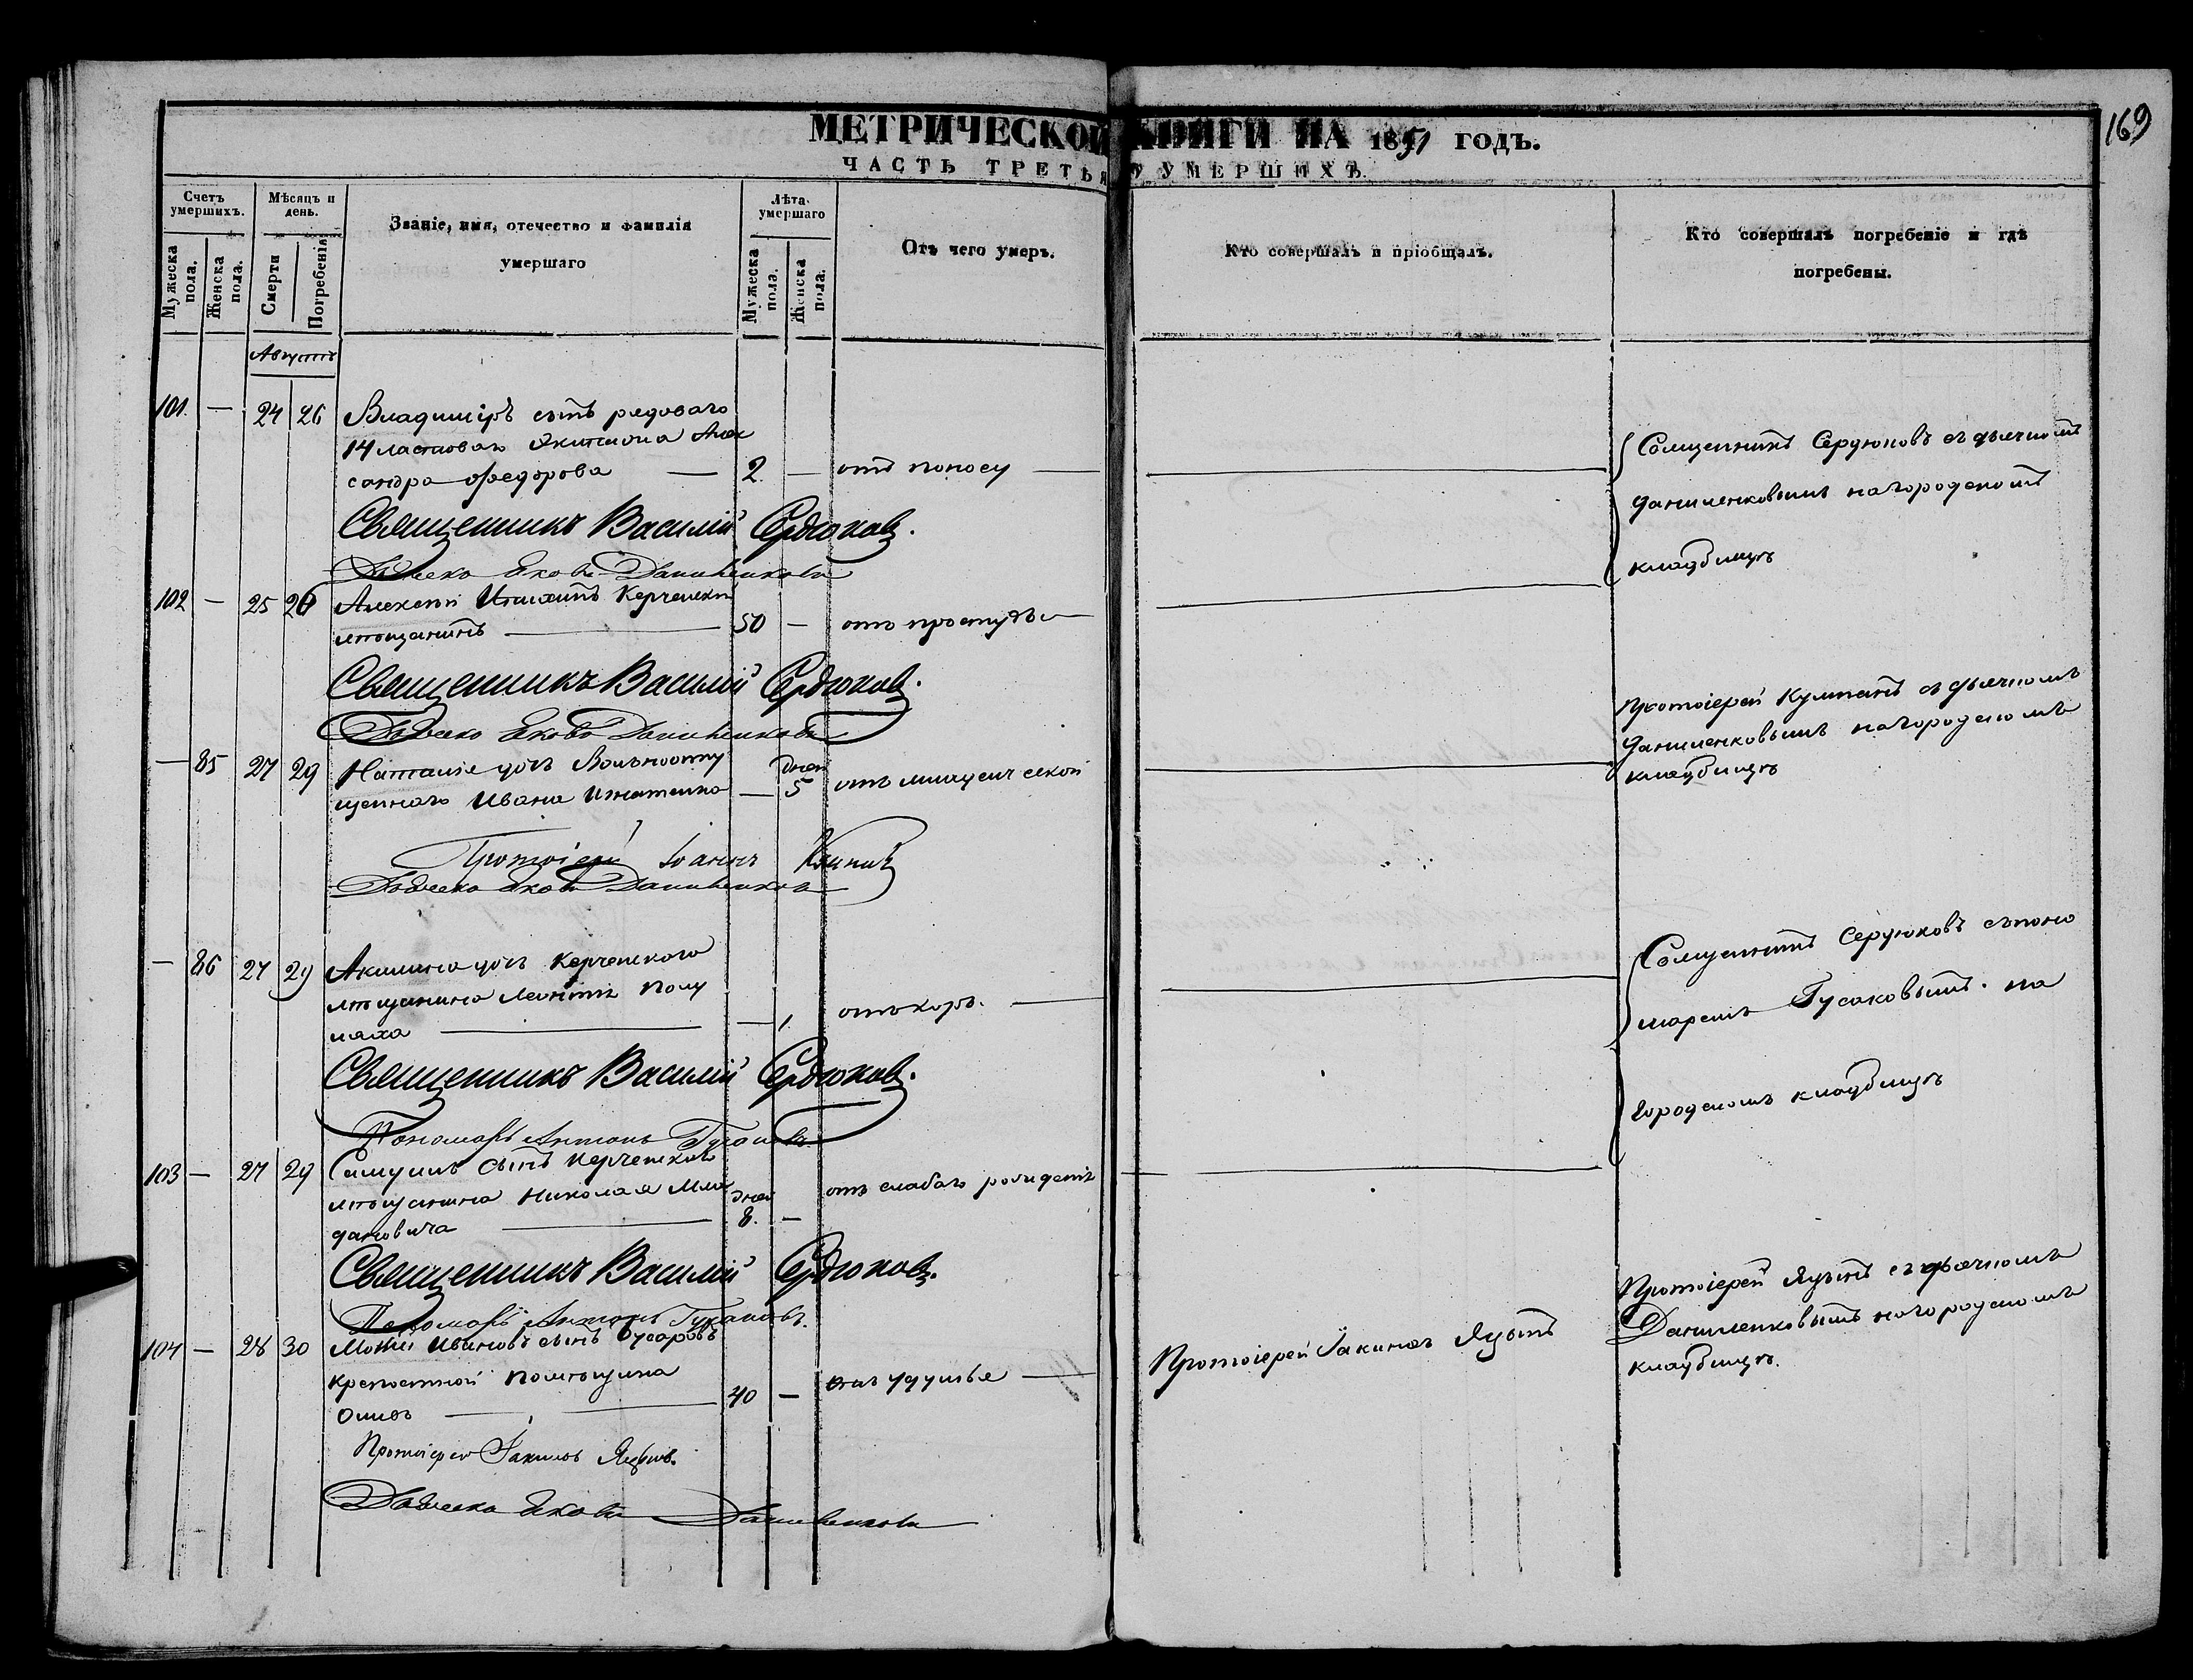 169
МЕТРИЧЕСКОЙ КНИГИ НА 1851 ГОДЪ.
ЧАСТЬ ТРЕТЬЯ О УМЕРШИХЪ.
Счетъ умершихъ.
Мужеска пола.
Женска пола.
Мѣсяцъ и день.
Смерти
Погребенія
Званіе, имя, отечество и фамилія
умершаго
Лѣта умершаго
Мужеска пола.
Женска пола.
Отъ чего умеръ.
Кто совершалъ и пріобщалъ.
Кто совершалъ погребеніе и гдѣ
погребены.
Августъ
101. — 24 26 Владиміръ сынъ рядоваго
14 ластоваго Экипажа Алек
сандра Федорова — 2 — отъ поносу —
Священникъ Сердюковъ съ дьячкомъ
Даниленковымъ на городскомъ
кладбищѣ
Священникъ Василій Сердюковъ.
Дьячекъ Яковъ Даниленковъ
102 — 25 26 Алексѣй Керченскій
мѣщанинъ — 50 — отъ простуды —
Священникъ Василій Сердюковъ.
Дьячекъ Яковъ Даниленковъ
— 85 27 29 Наталія дочь Вольноотпу
щеннаго Ивана Игнатенко — дней 5 отъ младенческой
Протоіерей съ дьячкомъ
Даниленковымъ на городскомъ
кладбищѣ
Протоіерей Іоаннъ
Дьячекъ Яковъ Даниленковъ
— 86 27 29 Акилина дочь Керченскаго
мѣщанина Леонтія Полу
ляха — — 1. отъ коръ. —
Священникъ Сердюковъ съ поно
маремъ Гусаковымъ. на
городскомъ кладбищѣ
Священникъ Василій Сердюковъ.
Пономарь Антонъ Гусаковъ.
103 — 27 29 Самуилъ сынъ Керченскаго
мѣщанина Николая Мла
дановича — дней 8. — отъ слабаго рожденія
Священникъ Василій Сердюковъ.
Пономарь Антонъ Гусаковъ.
104 — 28 30 Ивановъ сынъ Бусаровъ
крепостной помѣщика
— 40 — отъ удушья —
Протоіерей Іакинфъ
Протоіерей съ дьячкомъ
Даниленковымъ на городскомъ
кладбищѣ.
Протоіерей Іакинфъ
Дьячекъ Яковъ Даниленковъ